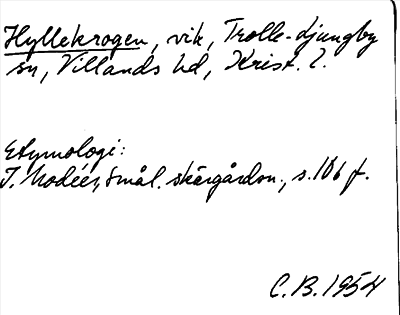 Hyllekrogen, vik, Trolle-Ljungby
sn, Villands hd, Krist. l.
Etymologi:
I. Modéer, Smål. skärgårdsn., s. 106 f.
C.B. 1954